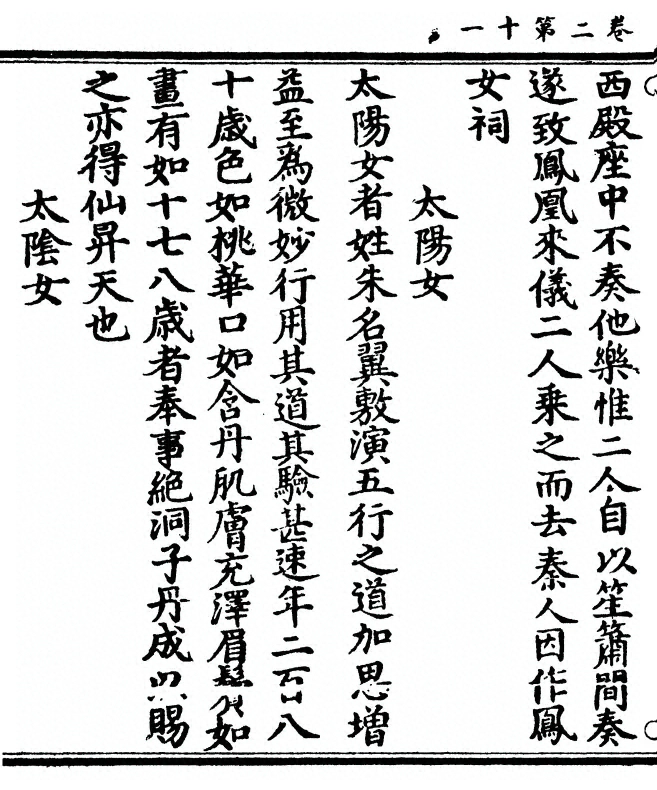 卷二第十一
西殿座中不奏他樂惟二人自以笙簫間奏
遂致鳳凰來儀二人乘之而去秦人因作鳳
女祠
太陽女
太陽女者姓朱名翼敷演五行之道加思增
益至為微妙行用其道其驗甚速年二百八
十歲色如桃華口如含丹肌膚充澤眉鬢如
畫有如十七八歲者奉事絕洞子丹成以賜
之亦得仙昇天也
太陰女